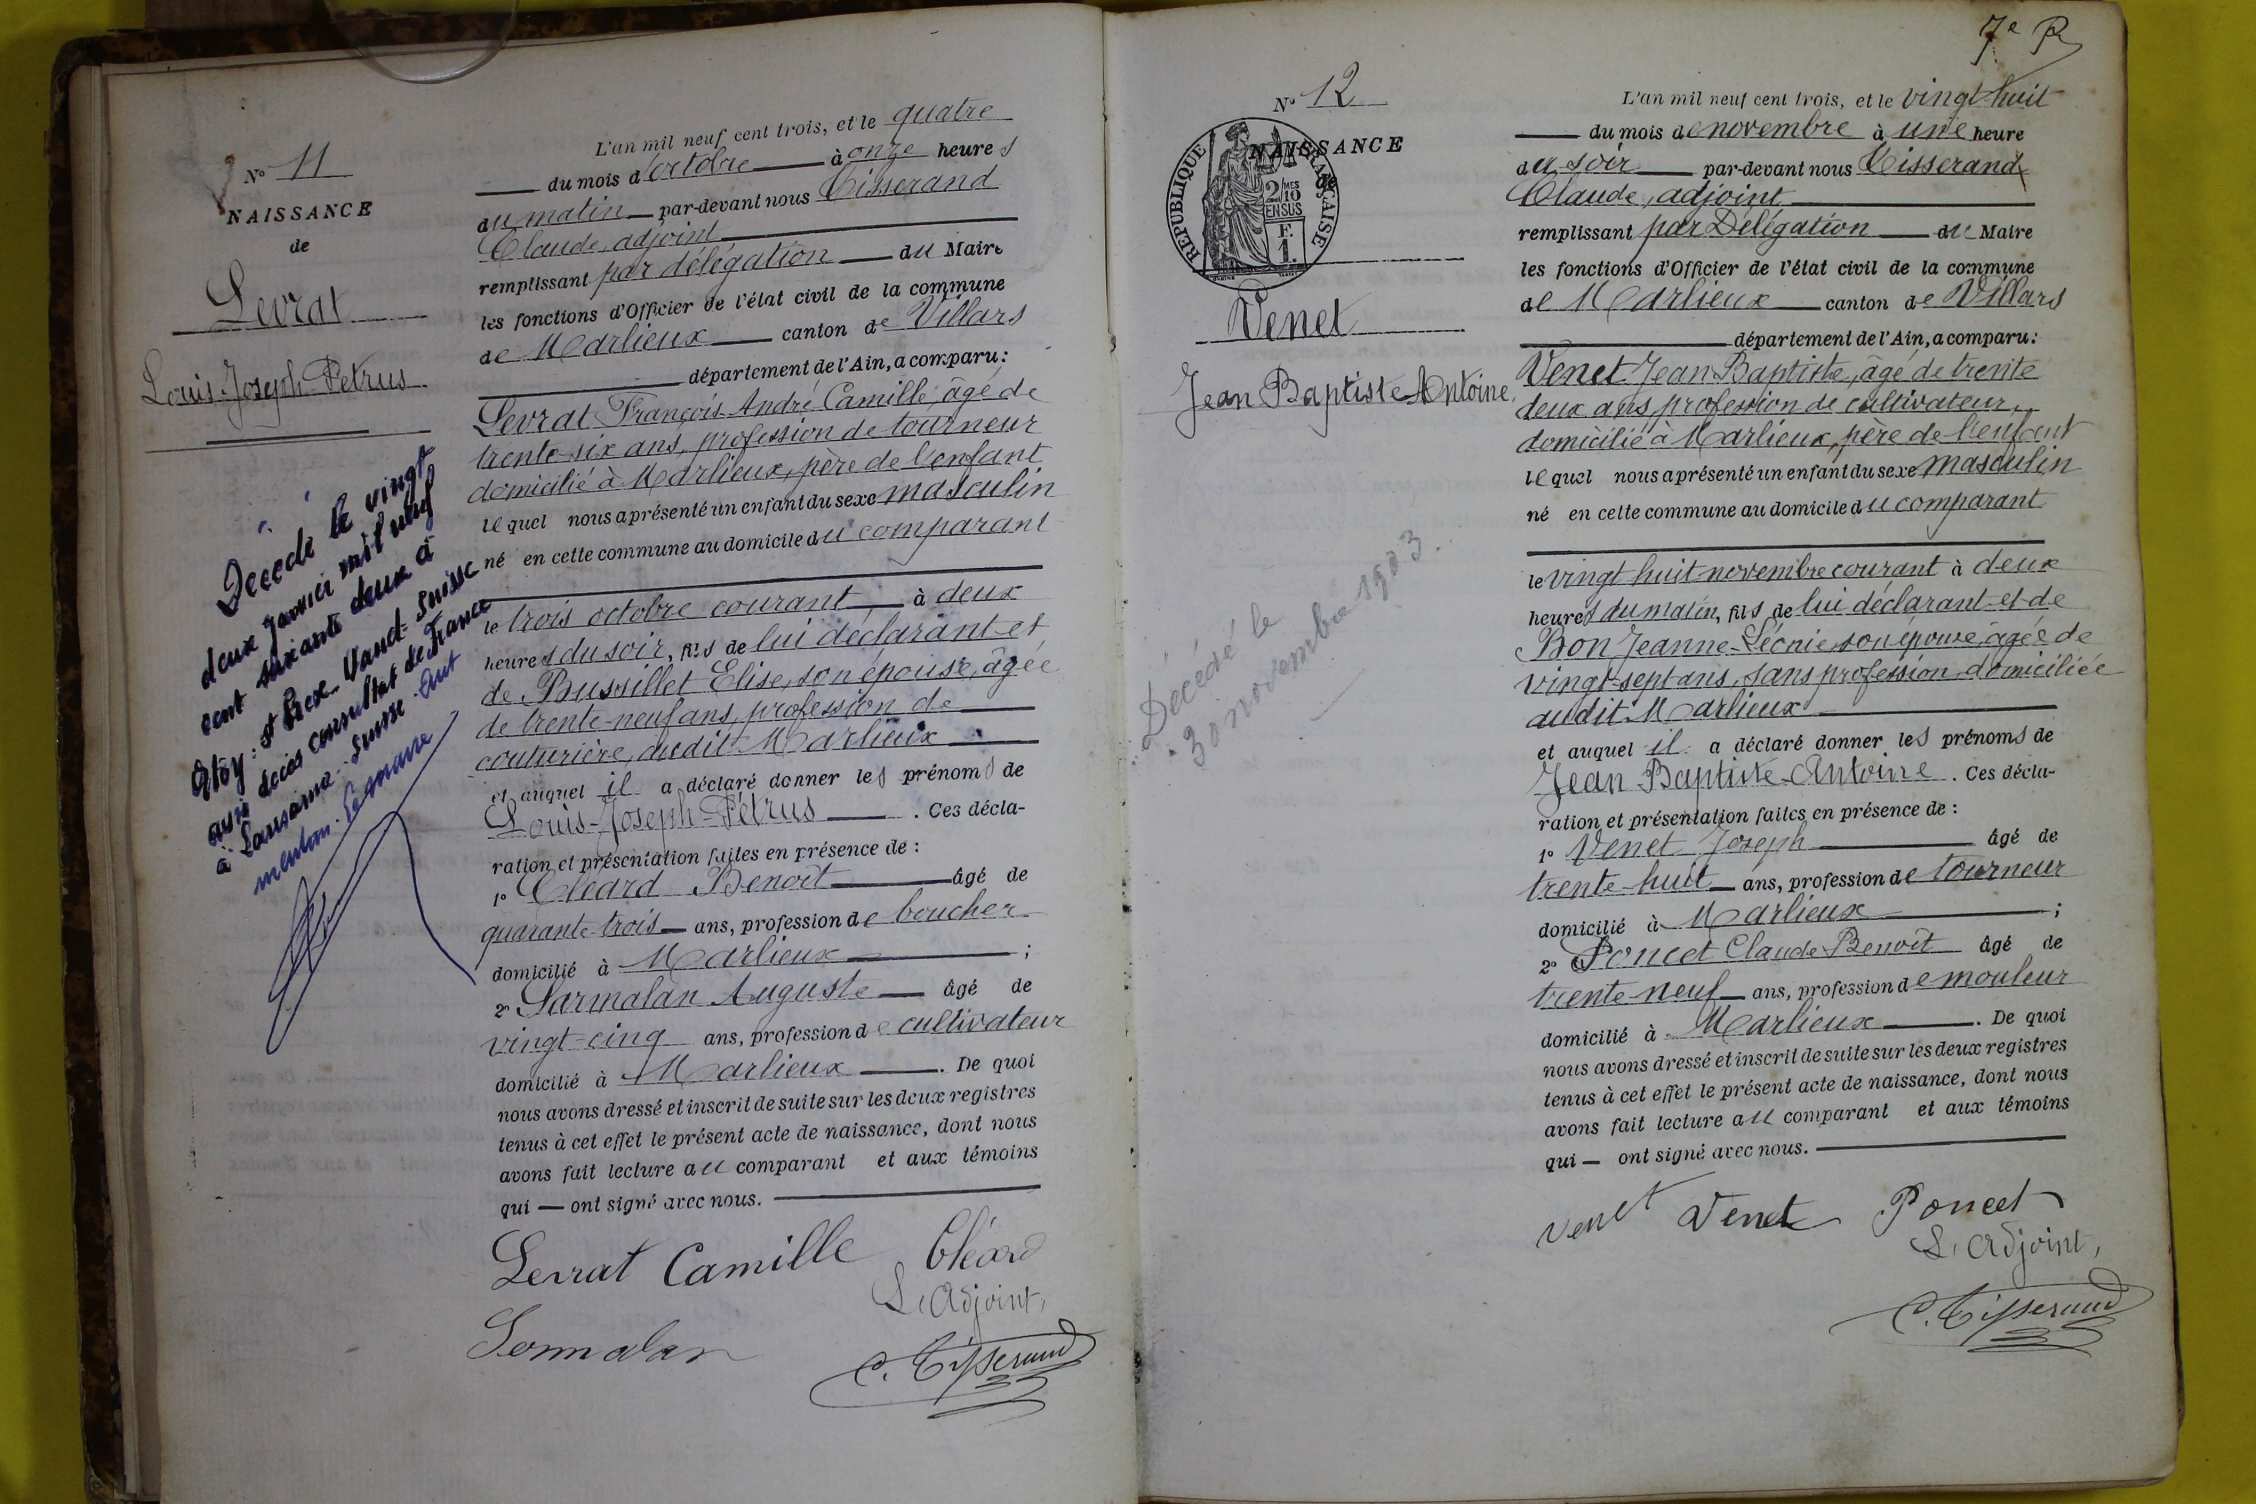 N° 11
NAISSANCE
de
Levrat
Louis-Joseph-Pétrus
Décédé le vingt
deux janvier mil neuf
cent soixante deux à
St Prex - Vaud - Suisse
avis décès consultat de France
à Lausanne - Suisse
mention.
L'an mil neuf cent trois, et le quatre
du mois d'octobre à onze heures
du matin par-devant nous Tisserand
Claude, adjoint
remplissant par délégation du Maire
les fonctions d'Officier de l'état civil de la commune
de Marlieux canton de Villars
département de l'Ain, a comparu:
Levrat François-André Camille, âgé de
trente-six ans, profession de tourneur
domicilié à Marlieux, père de l'enfant
lequel nous a présenté un enfant du sexe masculin
né en cette commune au domicile du comparant
le trois octobre courant à deux
heures du soir, fils de lui déclarant et
de Bussillet Elise, son épouse, âgée
de trente-neuf ans, profession de
couturière, audit Marlieux
et auquel il a déclaré donner les prénoms de
Louis-Joseph-Pétrus. Ces décla-
ration et présentation faites en présence de :
1° Cléard Benoît âgé de
quarante-trois ans, profession de boucher
domicilié à Marlieux ;
2° Sarmalan Auguste âgé de
vingt-cinq ans, profession de cultivateur
domicilié à Marlieux. De quoi
nous avons dressé et inscrit de suite sur les deux registres
tenus à cet effet le présent acte de naissance, dont nous
avons fait lecture au comparant et aux témoins
qui — ont signé avec nous.
Levrat Camille Cléard
L'Adjoint,
C. Tisserand
7e R
N° 12
NAISSANCE
de
REPUBLIQUE FRANÇAISE
2/10 MES
EN SUS
F.
1.
Venet
Jean Baptiste Antoine
Décédé le
30 novembre 1903.
L'an mil neuf cent trois, et le vingt-huit
du mois de novembre à une heure
du soir par-devant nous Tisserand
Claude, adjoint
remplissant par Délégation du Maire
les fonctions d'Officier de l'état civil de la commune
de Marlieux canton de Villars
département de l'Ain, a comparu:
Venet Jean Baptiste, âgé de trente
deux ans, profession de cultivateur,
domicilié à Marlieux, père de l'enfant
lequel nous a présenté un enfant du sexe masculin
né en cette commune au domicile du comparant
le vingt huit novembre courant à deux
heures du matin, fils de lui déclarant et de
Bon Jeanne-Léonie, son épouse, âgée de
vingt-sept ans, sans profession, domiciliée
audit Marlieux
et auquel il a déclaré donner les prénoms de
Jean Baptiste-Antoine. Ces décla-
ration et présentation faites en présence de :
1° Venet Joseph âgé de
trente-huit ans, profession de tourneur
domicilié à Marlieux ;
2° Poncet Claude Benoît âgé de
trente-neuf ans, profession de mouleur
domicilié à Marlieux. De quoi
nous avons dressé et inscrit de suite sur les deux registres
tenus à cet effet le présent acte de naissance, dont nous
avons fait lecture au comparant et aux témoins
qui — ont signé avec nous.
Venet Venet Poncet
L'Adjoint,
C. Tisserand